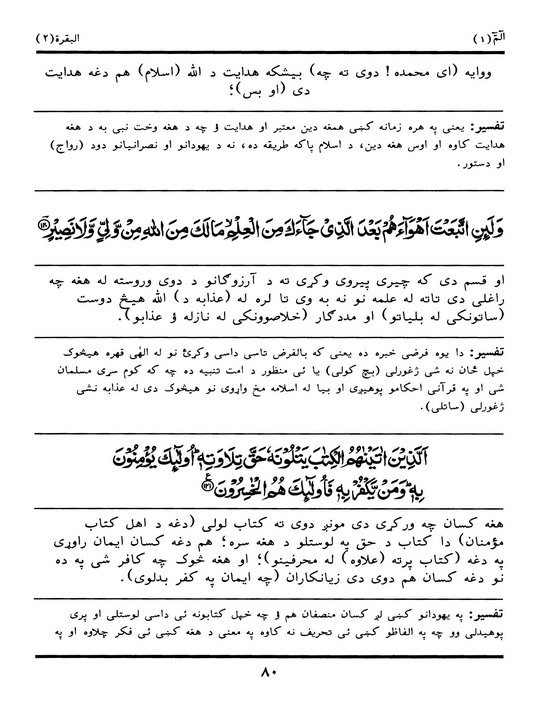 الٓمّٓ (١)
البقرة (٢)
ووایه (ای محمده! دوی ته چه) بیشکه هدایت د الله (اسلام) هم دغه هدایت
دی (او بس)؛
تفسیر: یعنی په هره زمانه کښی همغه دین معتبر او هدایت ؤ چه د هغه وخت نبی به د هغه
هدایت کاوه او اوس هغه دین، د اسلام پاکه طریقه ده، نه د یهودانو او نصرانیانو دود (رواج)
او دستور.
وَلَىِٕنِ اتَّبَعْتَ اَهْوَآءَهُمْ بَعْدَ الَّذِىْ جَآءَكَ مِنَ الْعِلْمِۙ مَا لَكَ مِنَ اللّٰهِ مِنْ وَّلِىٍّ وَّلَا نَصِيْرٍ ۝
او قسم دی که چیری پیروی وکړی ته د آرزوګانو د دوی وروسته له هغه چه
راغلی دی تاته له علمه نو نه به وی تا لره له (عذابه د) الله هیڅ دوست
(ساتونکی له بلیاتو) او مددګار (خلاصوونکی له نازله ؤ عذابو).
تفسیر: دا یوه فرضی خبره ده یعنی که بالفرض تاسی داسی وکړئ نو له الٰهی قهره هیڅوک
خپل ځان نه شی ژغورلی (بچ کولی) یا ئی منظور د امت تنبیه ده چه که کوم سړی مسلمان
شی او په قرآنی احکامو پوهیږی او بیا له اسلامه مخ واړوی نو هیڅوک دی له عذابه نشی
ژغورلی (ساتلی).
اَلَّذِيْنَ اٰتَيْنٰهُمُ الْكِتٰبَ يَتْلُوْنَهٗ حَقَّ تِلَاوَتِهٖ ؕ اُولٰٓىِٕكَ يُؤْمِنُوْنَ
بِهٖ ؕ وَمَنْ يَّكْفُرْ بِهٖ فَاُولٰٓىِٕكَ هُمُ الْخٰسِرُوْنَ ۝
هغه کسان چه ورکړی دی مونږ دوی ته کتاب لولی (دغه د اهل کتاب
مؤمنان) دا کتاب د حق په لوستلو د هغه سره؛ هم دغه کسان ایمان راوړی
په دغه (کتاب پرته (علاوه) له محرفینو)؛ او هغه څوک چه کافر شی په ده
نو دغه کسان هم دوی دی زیانکاران (چه ایمان په کفر بدلوی).
تفسیر: په یهودانو کښی لږ کسان منصفان هم ؤ چه خپل کتابونه ئی داسی لوستلی او پری
پوهیدلی وو چه په الفاظو کښی ئی تحریف نه کاوه په معنی د هغه کښی ئی فکر چلاوه او په
٨٠